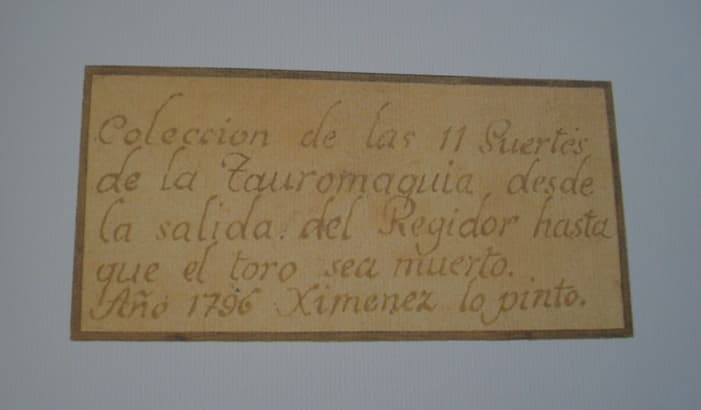 Coleccion de las 11 Suertes
de la Tauromaquia desde
la salida. del Regidor hasta
que el toro sea muerto.
Año 1796 Ximenez lo pinto.